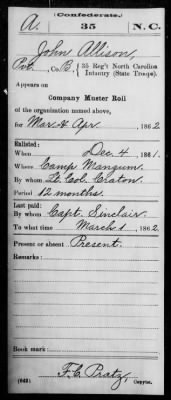 (Confederate.)
A. 35 N.C.
John Allison,
Pvt., Co. B, 35 Reg't North Carolina
Infantry (State Troops).
Appears on
Company Muster Roll
of the organization named above,
for Mar & Apr, 1862
Enlisted:
When Dec 4, 1861.
Where Camp Mangum.
By whom Lt. Col. Craton.
Period 12 months.
Last paid:
By whom Capt. Sinclair.
To what time March 1, 1862
Present or absent Present.
Remarks:
Book mark:
(642) F. C. Pratz,
Copyist.